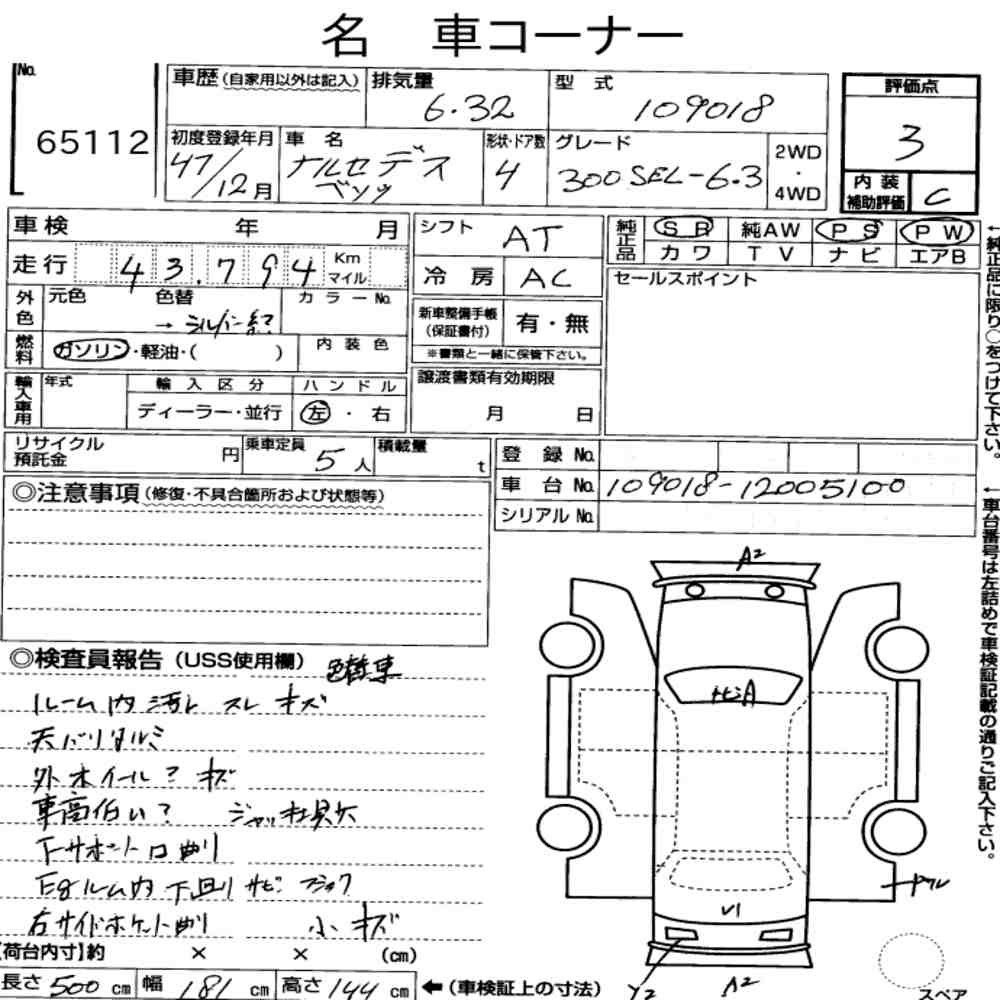 名 車コーナー
No. 65112
車歴(自家用以外は記入) 排気量 6.32 型式 109018
初度登録年月 47/12月 車名 メルセデスベンツ 形状・ドア数 4 グレード 300SEL-6.3 2WD・4WD
評価点 3
内装補助評価 C
車検 年 月
走行 43.794 Km マイル
外色 元色 色替 → シルバー紺 カラーNo.
燃料 ガソリン・軽油・( ) 内装色
輸入車用 年式 輸入区分 ディーラー・並行 ハンドル 左・右
シフト AT
冷房 AC
新車整備手帳(保証書付) 有・無
※書類と一緒に保管下さい。
譲渡書類有効期限 月 日
純正品 SR 純AW PS PW
カワ TV ナビ エアB
セールスポイント
←純正品に限り○をつけて下さい。
リサイクル預託金 円 乗車定員 5人 積載量 t
登録No.
車台No. 109018-12005100
シリアルNo.
←車台番号は左詰めで車検証記載の通りご記入下さい。
◎注意事項(修復・不具合箇所および状態等)
◎検査員報告(USS使用欄) 色替車
ルーム内 汚れ スレ キズ
天バリタルミ
外ホイール? キズ
車高低い? ジャッキ工具欠
下サポート凹曲り
Egルーム内 下回り サビ
右サイドポケット曲り 小キズ
【荷台内寸】約 × × (cm)
長さ 500 cm 幅 181 cm 高さ 144 cm ←(車検証上の寸法)
A2
V1
Y2
A2
スペア